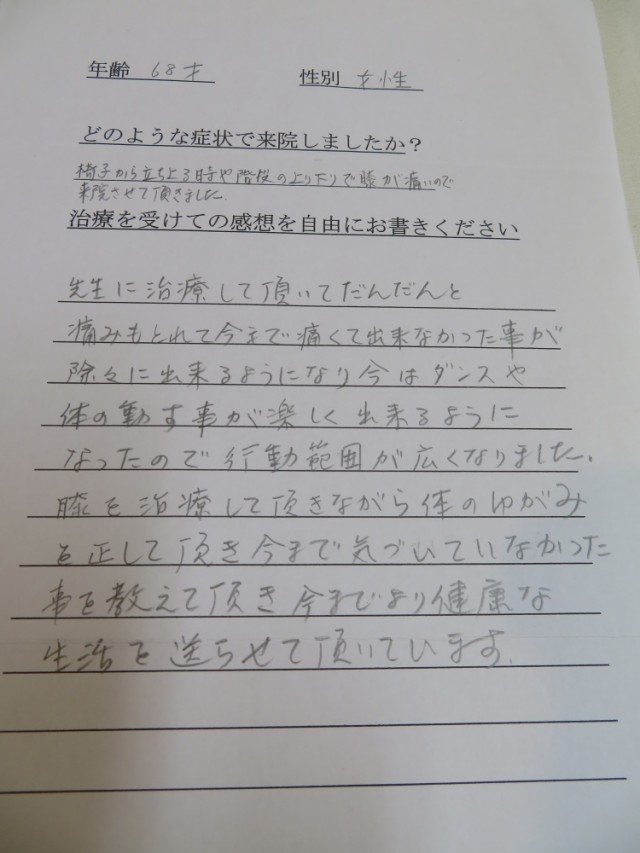 年齢 68才 性別 女性
どのような症状で来院しましたか？
椅子から立ち上る時や階段の上り下りで膝が痛いので
来院させて頂きました.
治療を受けての感想を自由にお書きください
先生に治療して頂いてだんだんと
痛みもとれて今まで痛くて出来なかった事が
除々に出来るようになり今はダンスや
体の動す事が楽しく出来るように
なったので行動範囲が広くなりました.
膝を治療して頂きながら体のゆがみ
を正して頂き今まで気づいていなかった
事を教えて頂き今までより健康な
生活を送らせて頂いています.